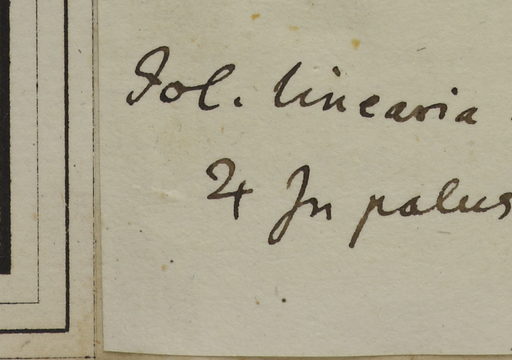 Fol. linearia.
♃ In palus